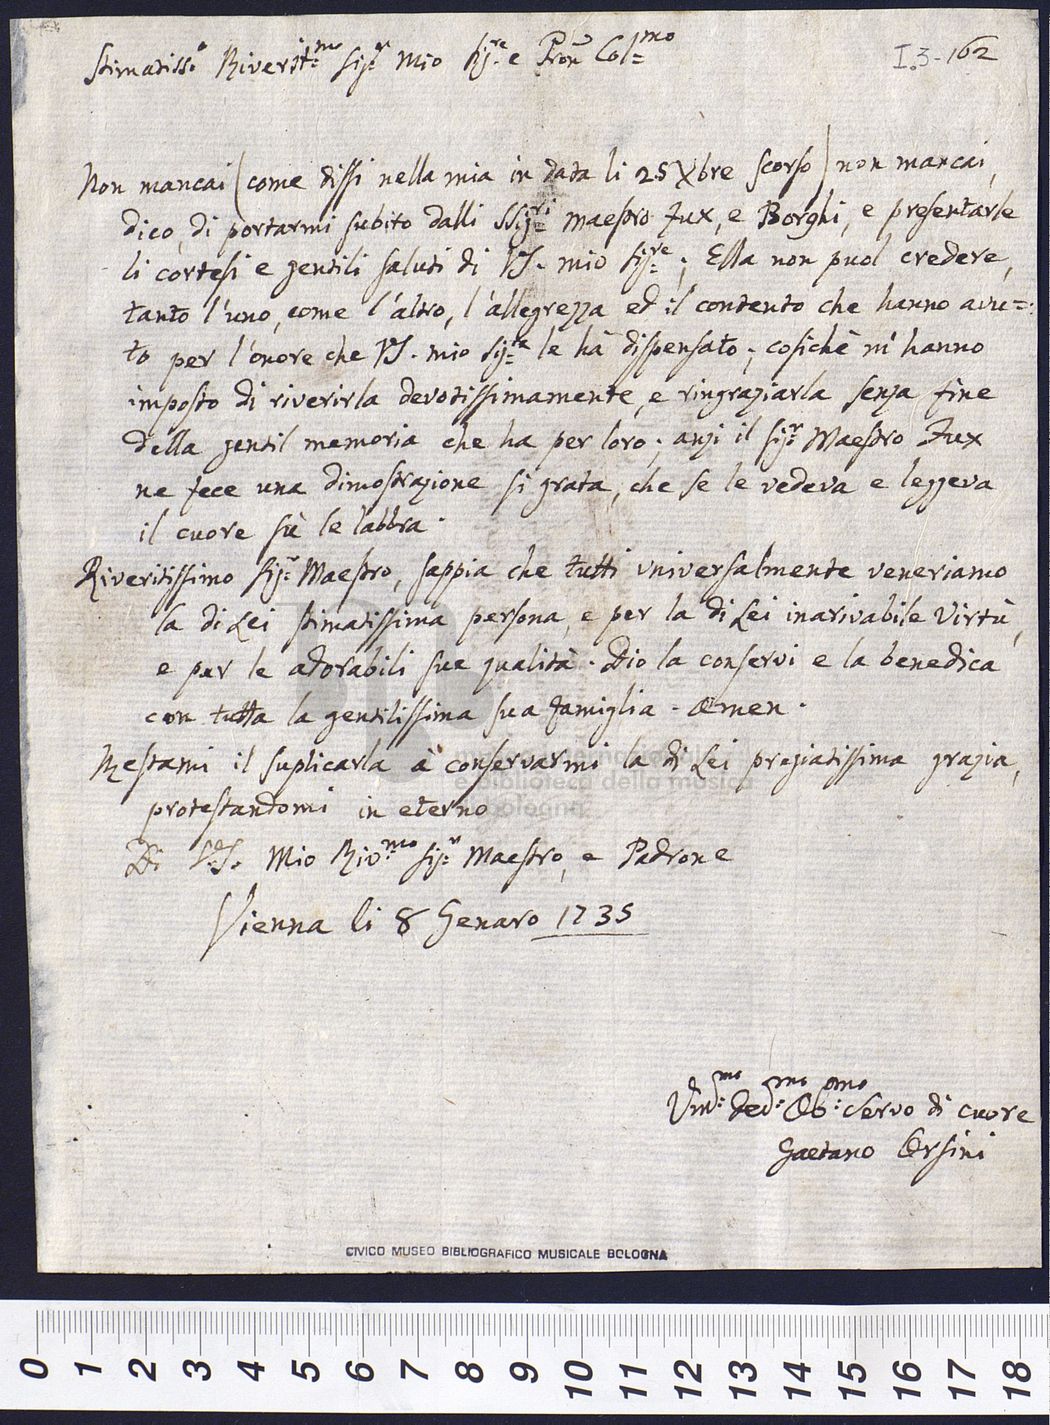 I.3-162
Stimatiss.o Riverit.mo Sig.r Mio Sig.re e Pron Col.mo
Non mancai (come dissi nella mia in data li 25 Xbre scorso) non mancai,
dico, di portarmi subito dalli SSig.ri Maestro Fux, e Borghi, e presentarle
li cortesi e gentili saluti di VS. mio Sig.re; Ella non puol credere,
tanto l'uno, come l'altro, l'allegrezza ed il contento che hanno avu=
to per l'onore che VS. mio Sig.re le hà dispensato; cosichè m'hanno
imposto di riverirla devotissimamente, e ringraziarla senza fine
della gentil memoria che ha per loro; anzi il Sig.r Maestro Fux
ne fece una dimostrazione si grata, che se le vedeva e leggeva
il cuore sù le labbra.
Riveritissimo Sig.r Maestro, sappia che tutti universalmente veneriamo
la di Lei stimatissima persona, e per la di Lei inarivabile Virtù,
e per le adorabili sue qualità. Dio la conservi e la benedica
con tutta la gentilissima sua famiglia. Amen.
Restami il suplicarla à conservarmi la di Lei pregiatissima grazia,
protestandomi in eterno
Di V.S. Mio Riv.mo Sig.r Maestro, e Padrone
Vienna li 8 Genaro 1735
Um.mo Dev.mo Ob.mo Servo di cuore
Gaetano Orsini
museo internazionale
e biblioteca della musica
di bologna
CIVICO MUSEO BIBLIOGRAFICO MUSICALE BOLOGNA
0 1 2 3 4 5 6 7 8 9 10 11 12 13 14 15 16 17 18